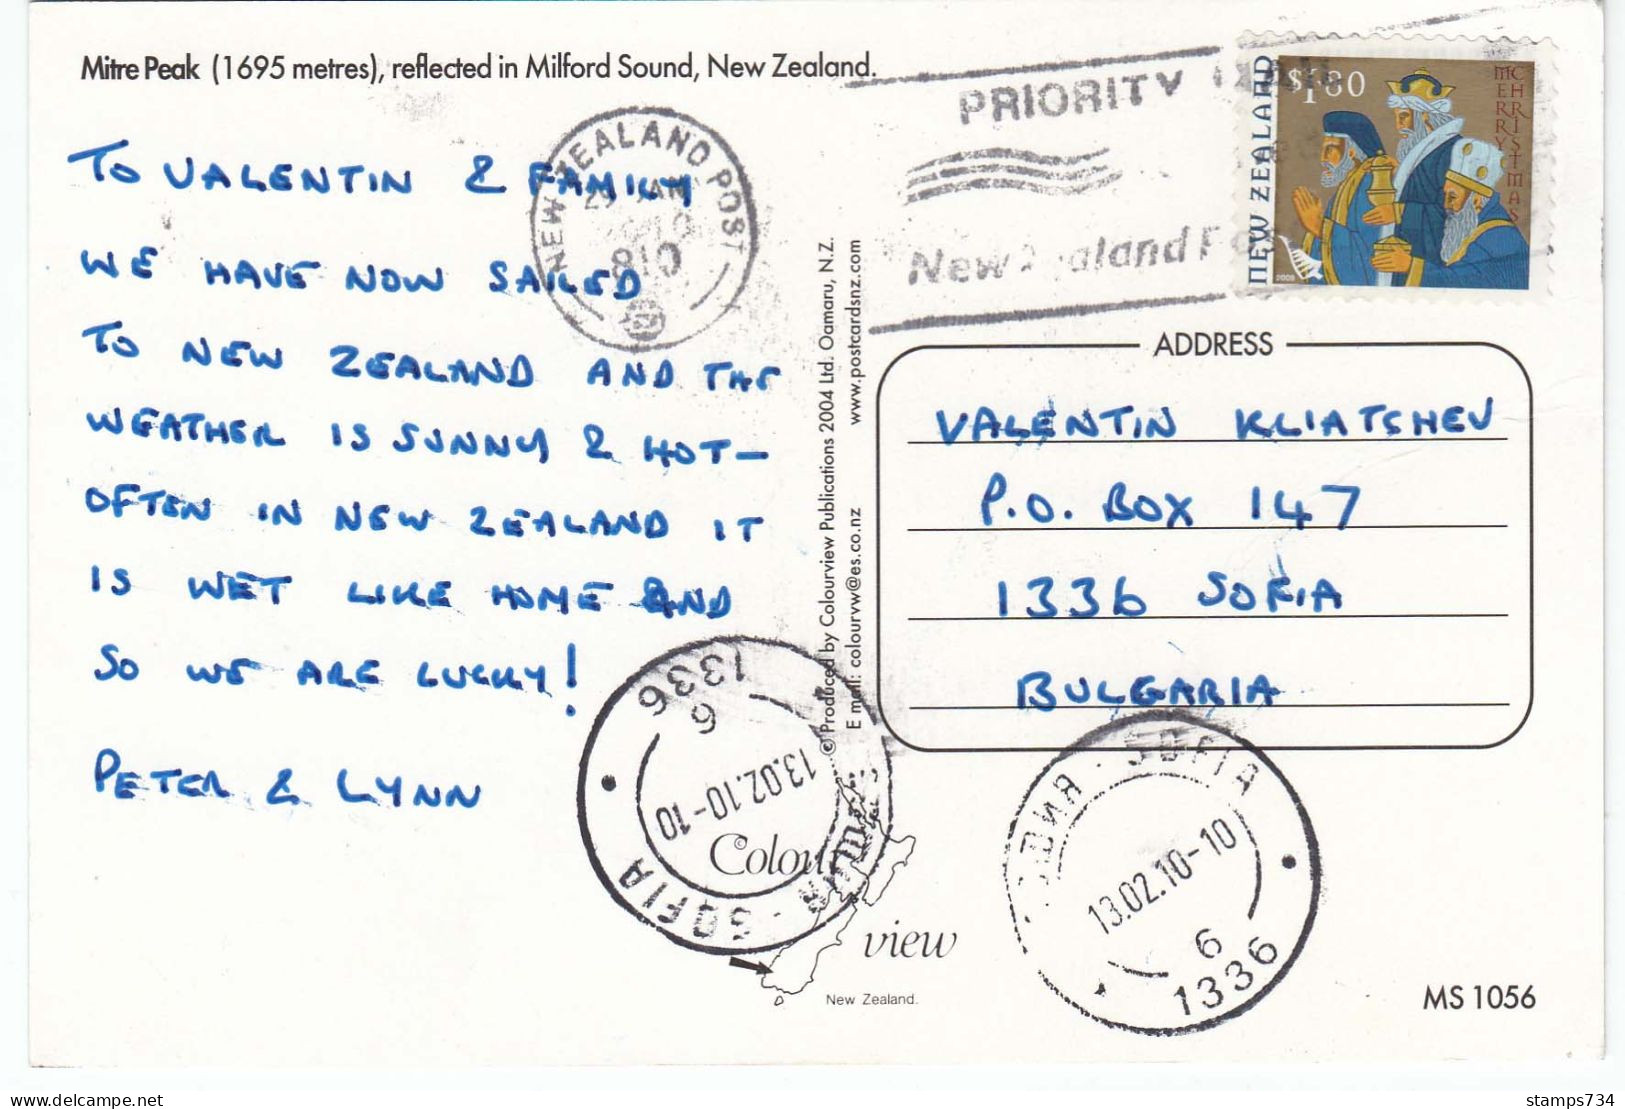 Mitre Peak (1695 metres), reflected in Milford Sound, New Zealand.
TO VALENTIN & FAMILY
WE HAVE NOW SAILED
TO NEW ZEALAND AND THE
WEATHER IS SUNNY & HOT-
OFTEN IN NEW ZEALAND IT
IS WET LIKE HOME AND
SO WE ARE LUCKY!
PETER & LYNN
NEW ZEALAND POST
810
PRIORITY
New Zealand
$1.80
NEW ZEALAND
MERRY
CHRISTMAS
© Produced by Colourview Publications 2004 Ltd. Oamaru, N.Z.
E mail: colourvw@es.co.nz www.postcardsnz.com
ADDRESS
VALENTIN KLIATSHEV
P.O. BOX 147
1336 SOFIA
BULGARIA
1336
6
13.02.10-10
SOFIA
Colour
view
New Zealand.
SOFIA
13.02.10-10
6
1336
MS 1056
stamps734